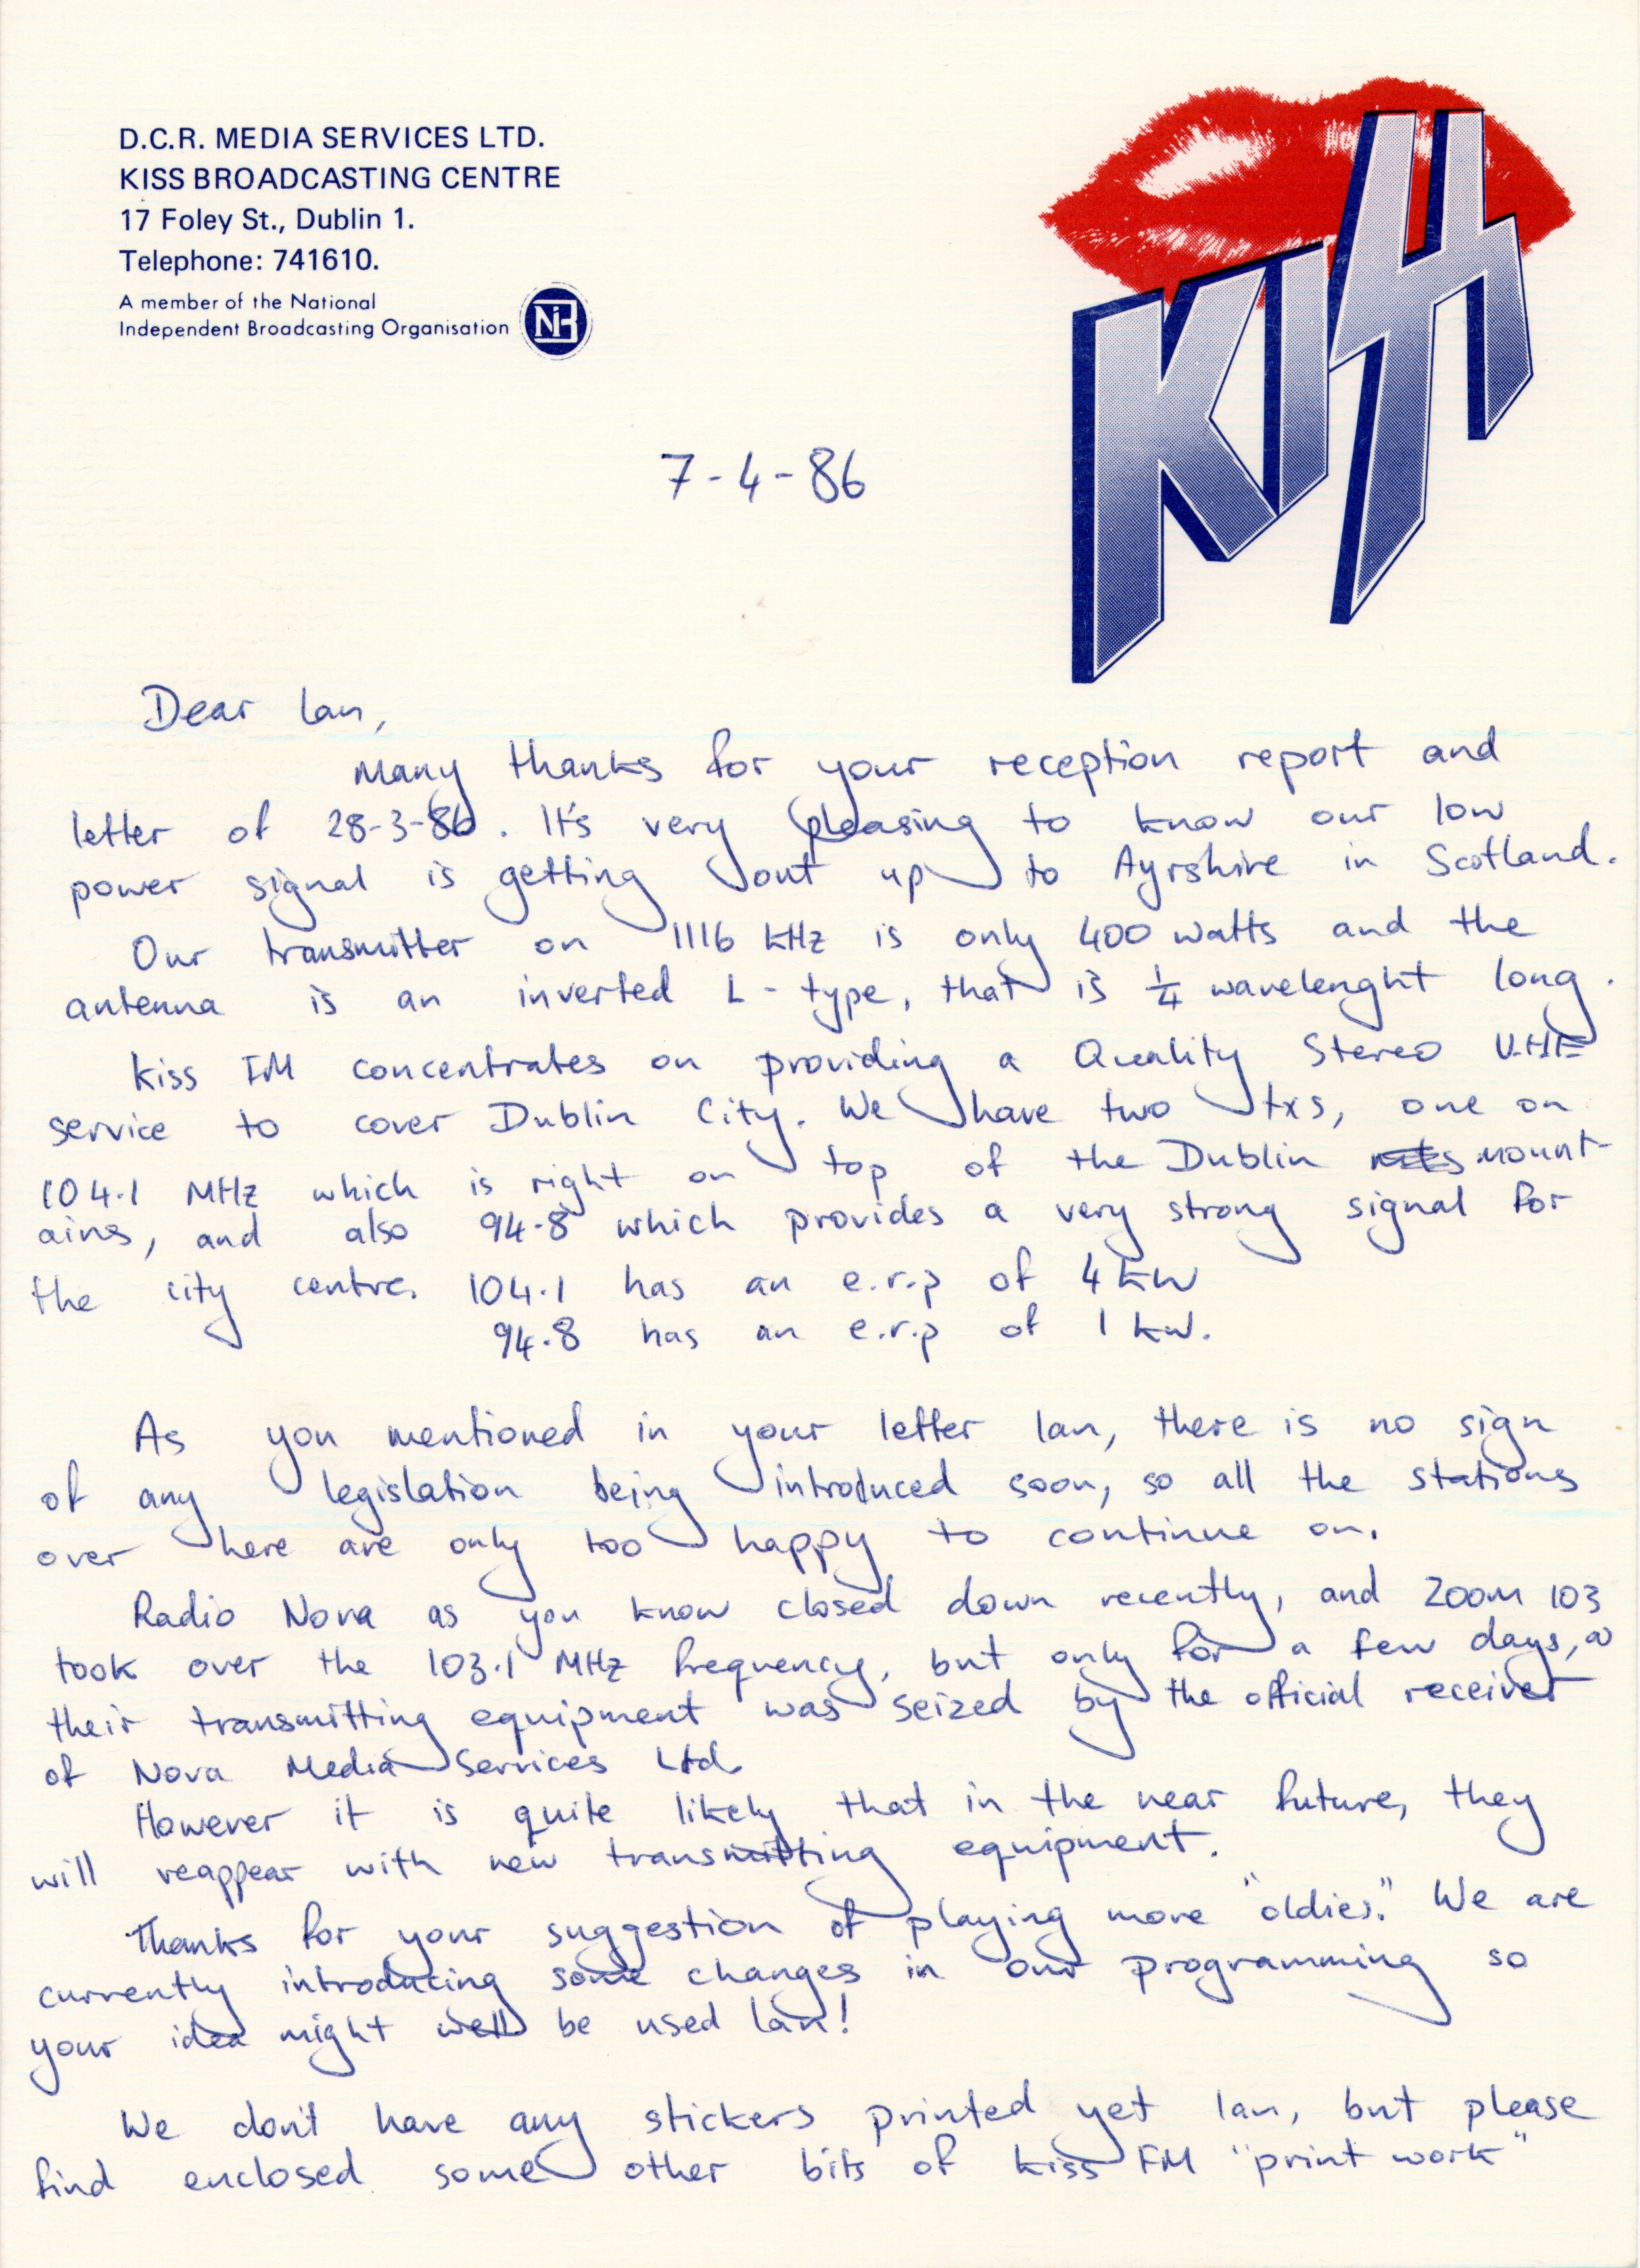 D.C.R. MEDIA SERVICES LTD.
KISS BROADCASTING CENTRE
17 Foley St., Dublin 1.
Telephone: 741610.
A member of the National
Independent Broadcasting Organisation
NiB
KISS
7-4-86
Dear Ian,
Many thanks for your reception report and
letter of 28-3-86. It's very pleasing to know our low
power signal is getting out up to Ayrshire in Scotland.
Our transmitter on 1116 kHz is only 400 watts and the
antenna is an inverted L-type, that is ¼ wavelenght long.
Kiss FM concentrates on providing a Quality Stereo V.H.F
service to cover Dublin City. We have two txs, one on
104.1 MHz which is right on top of the Dublin mount-
ains, and also 94.8 which provides a very strong signal for
the city centre. 104.1 has an e.r.p of 4 kW
94.8 has an e.r.p of 1 kW.
As you mentioned in your letter Ian, there is no sign
of any legislation being introduced soon, so all the stations
over here are only too happy to continue on.
Radio Nova as you know closed down recently, and ZOOM 103
took over the 103.1 MHz frequency, but only for a few days, as
their transmitting equipment was seized by the official receiver
of Nova Media Services Ltd.
However it is quite likely that in the near future, they
will reappear with new transmitting equipment.
Thanks for your suggestion of playing more "oldies". We are
currently introducing some changes in our programming so
your idea might well be used Ian!
We don't have any stickers printed yet Ian, but please
find enclosed some other bits of Kiss FM "print work"